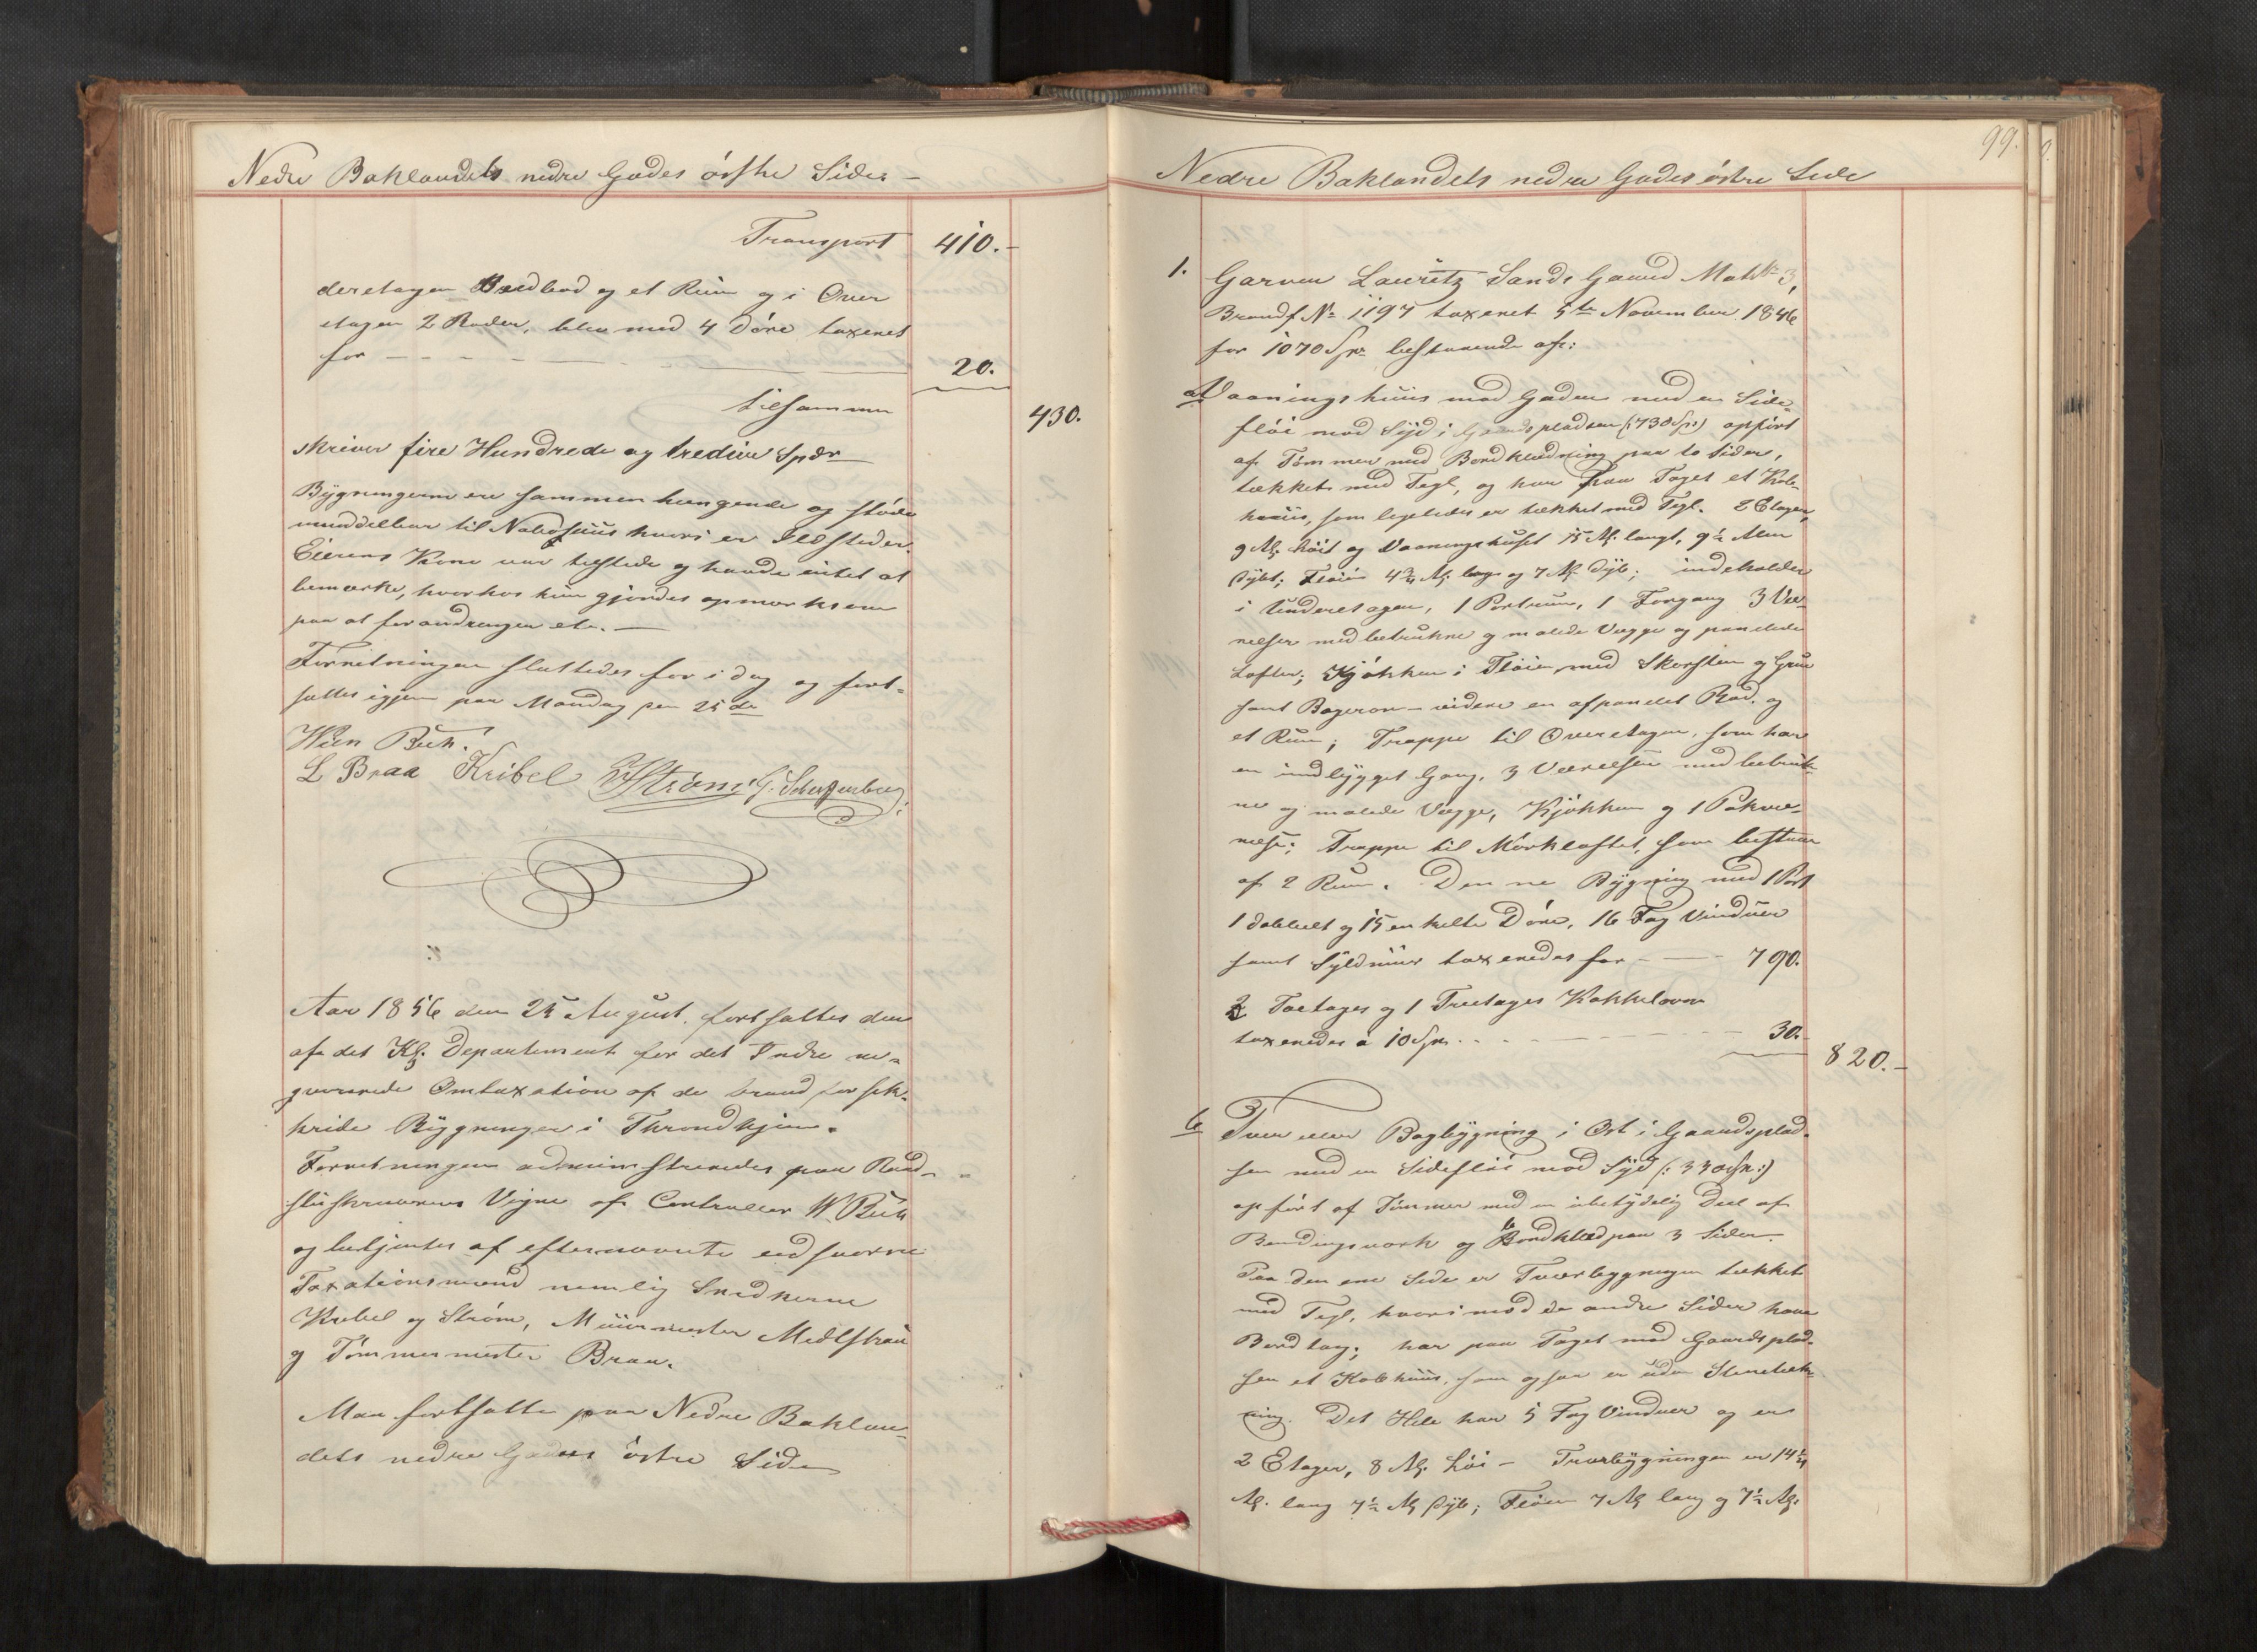 Nedre Baklandets nedre Gades østre Side
Transport 410.-
deretagen Vedbod og et Rum og i Over
etagen 2 Boder, blev med 4 Døre taxeret
for - - - 20.
tilsammen 430.
skriver fire Hundrede og tredive Spdr
Bygningerne ere sammenhængende og støde
umiddelbar til Nabohuus hvori er Ildsteder.
Eierens Kone var tilstede og havde intet at
bemærke, hvorhos hun gjordes opmærksom
paa at forandringer etc. —
Forretningen sluttedes for i dag og fort-
sættes igjen paa Mandag den 25de
Win Buch.
L Braa Kribel Strøm
Aar 1856 den 25 August fortsattes den
af det Kgl. Departement for det Indre re-
qvirerede Omtaxation af de brandforsik-
krede Bygninger i Throndhjem.
Forretningen administreredes paa Raad-
stueskriverens Vegne af Controlleur W Buch
og betjentes af efternævnte edsvorne
Taxationsmænd nemlig Snedkerne
Kribel og Strøm, Muurmester
og Tømmermester Braa.
Man fortsatte paa Nedre Baklan-
dets nedre Gades østre Side
99.
Nedre Baklandets nedre Gades østre Side
1. Garver Lauritz Sands Gaard Mat No 3,
Brandf No 1197 taxeret 5te November 1846
for 1070 Spd bestaaende af:
a Vaaningshuus mod Gaden med en Side-
fløi mod Syd i Gaardspladsen (:730 Spd:) opført
af Tømmer med Bordklædning paa to Sider,
tækket med Tegl, og har paa Taget et Kob-
huus, som ligeledes er tækket med Tegl. 2 Etager,
9 Al. høit og Vaaningshuset 15 Al. langt, 9½ Alen
dybt; Fløien 4¾ Al. lang og 7 Al. dyb; indeholder
i Underetagen, 1 Portrum, 1 Forgang 3 Væ-
relser med betrukne og malede Vægge og panelede
Lofter; Kjøkken i Fløien med Skorsten og Grue
samt Bagerovn - videre en afpanelet Bod, og
et Rum; Trappe til Overetagen, som har
en indbygget Gang, 3 Værelser med betruk-
ne og malede Vægge, Kjøkken og 1 Pakvæ-
relse; Trappe til Mørkloftet, som bestaar
af 2 Rum. Denne Bygning med 1 Port
1 dobbelt og 15 enkelte Døre, 16 Fag Vinduer
samt Syldmuur taxeredes for - - 790.
2 Toetages og 1 Treetages Kakkelovn
taxeredes a 10 Spd - - - 30.
820.-
b Tver eller Bagbygning i Øst i Gaardsplad-
sen med en Sidefløi mod Syd (:330 Spd:)
opført af Tømmer med en ubetydelig Deel af
Bindingsværk og Bordklæd paa 3 Sider.
Paa den ene Side er Tværbygningen tækket
med Tegl, hvorimod de andre Sider have
Bordtag; har paa Taget mod Gaardsplad-
sen et Kobhuus, som ogsaa er uden Steentæk-
ning. Det Hele har 5 Fag Vinduer og er
2 Etager, 8 Al. høi - Tverbygningen er 14¼
Al. lang 7½ Al dyb; Fløien 7 Al lang og 7½ Al.